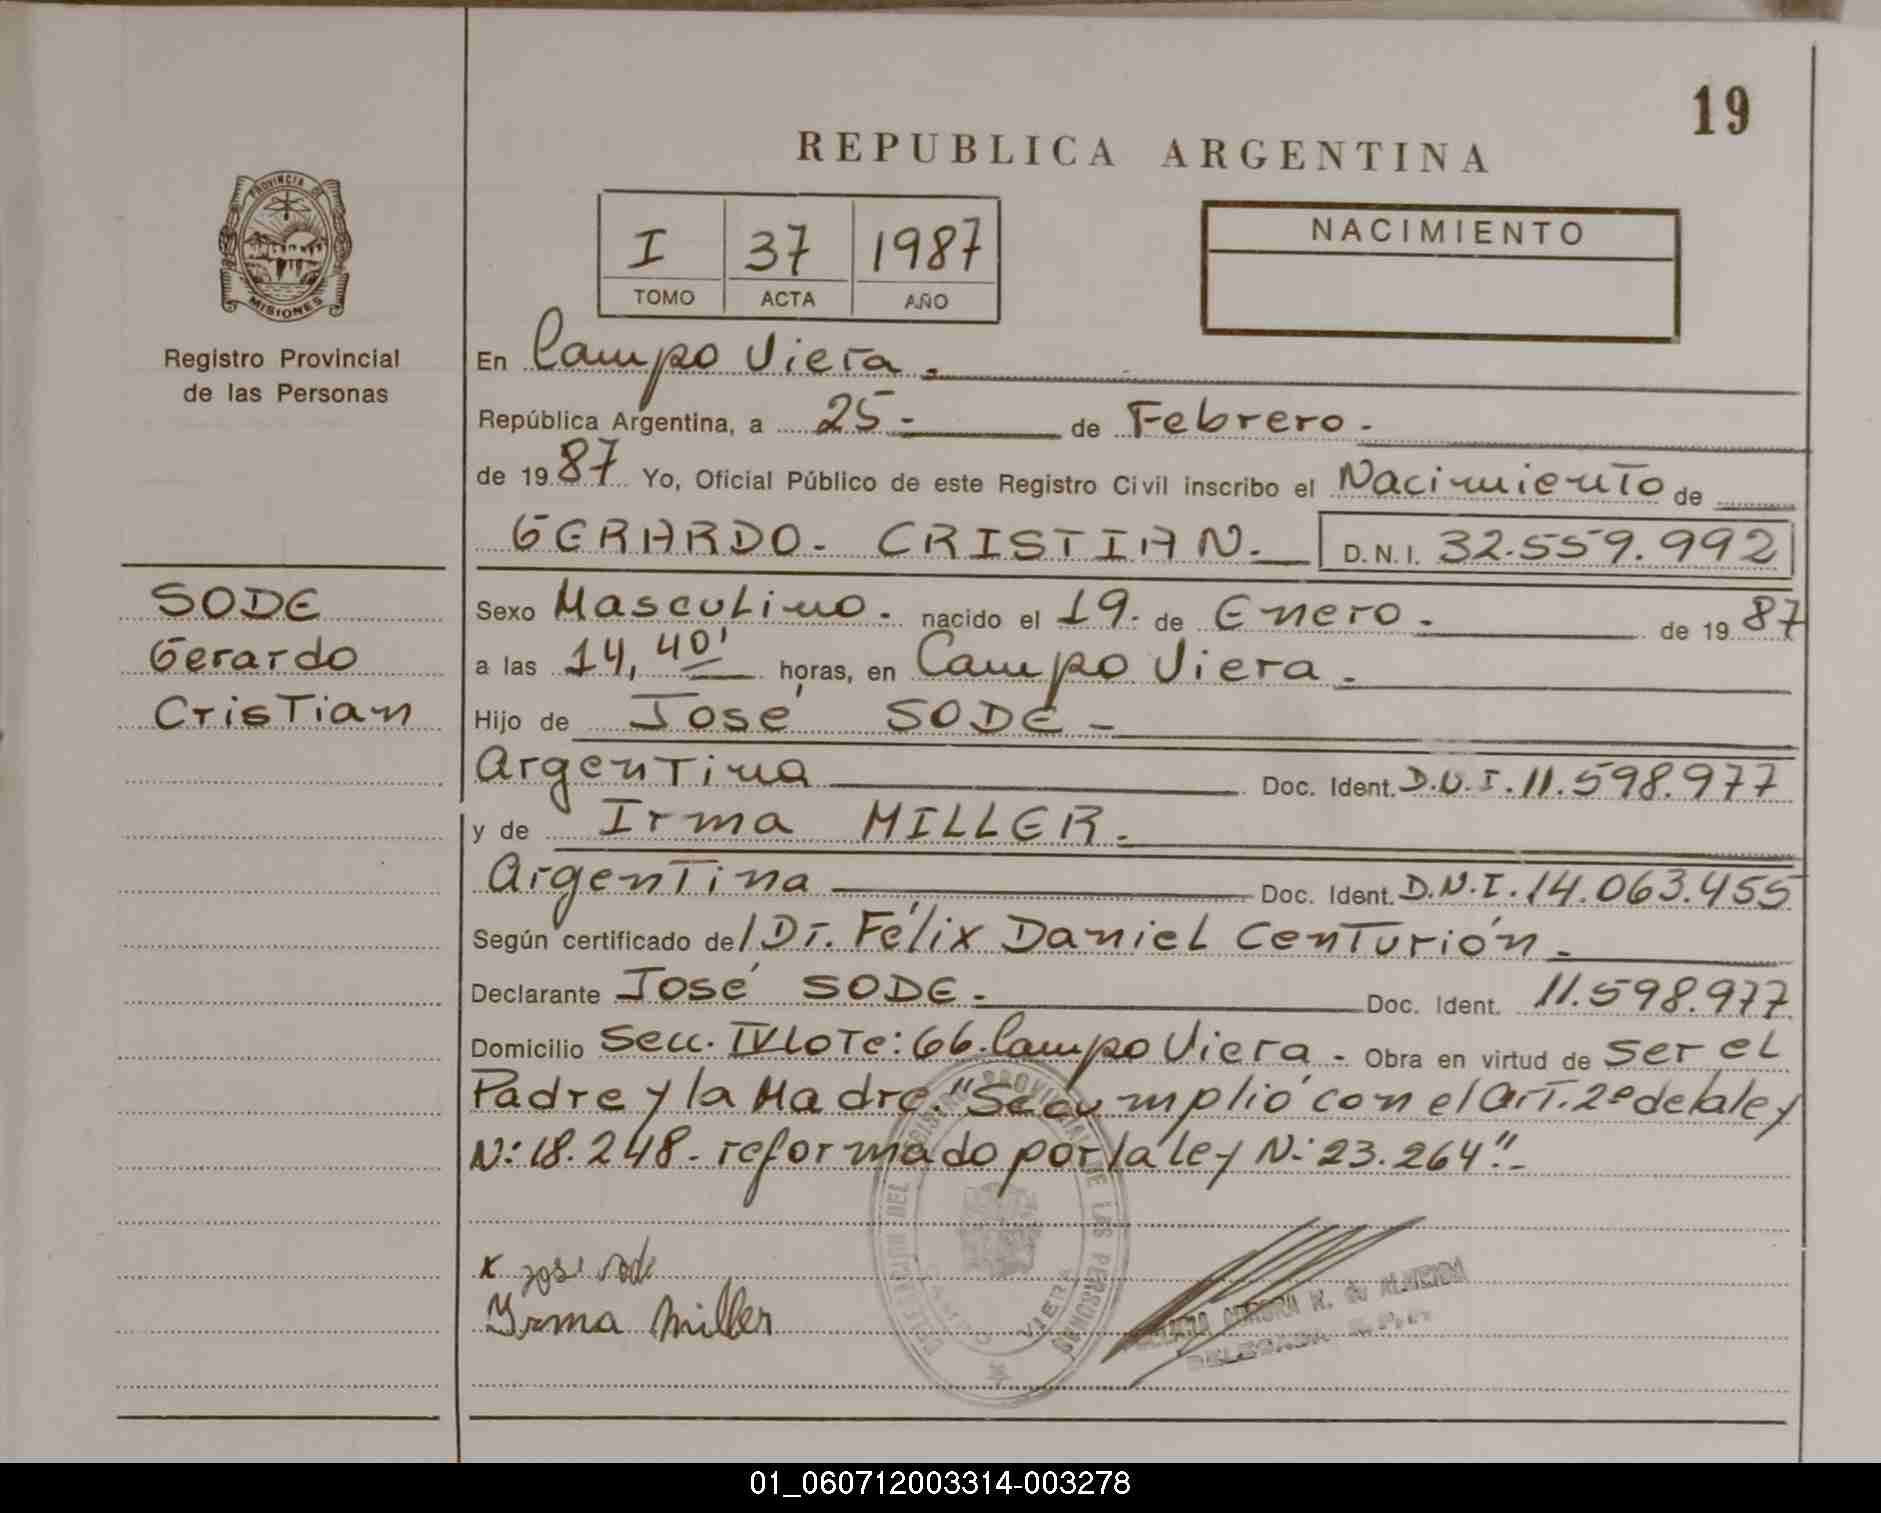 19
REPUBLICA ARGENTINA
PROVINCIA DE
MISIONES
Registro Provincial
de las Personas
I 37 1987
TOMO ACTA AÑO
NACIMIENTO
En Campo Viera.
República Argentina, a 25- de Febrero.
de 1987 Yo, Oficial Público de este Registro Civil inscribo el Nacimiento de
GERARDO- CRISTIAN. D.N.I. 32.559.992
SODE
Gerardo
Cristian
Sexo Masculino. nacido el 19. de Enero. de 1987
a las 14,40' horas, en Campo Viera.
Hijo de José SODE-
Argentina Doc. Ident. D.N.I. 11.598.977
y de Irma MILLER.
Argentina Doc. Ident. D.N.I. 14.063.455
Según certificado de/ Dr. Félix Daniel Centurión.
Declarante José SODE. Doc. Ident. 11.598.977
Domicilio Secc. IV Lote: 66. Campo Viera. Obra en virtud de ser el
Padre y la Madre. "Se cumplió con el Art. 2º de la ley
N: 18.248- reformado por la ley N: 23.264".-
x José Sode
Irma Miller
PROVINCIAL DE LAS PERSONAS
CAMPO VIERA
DE ALMEIDA
DELEGADA
01_060712003314-003278